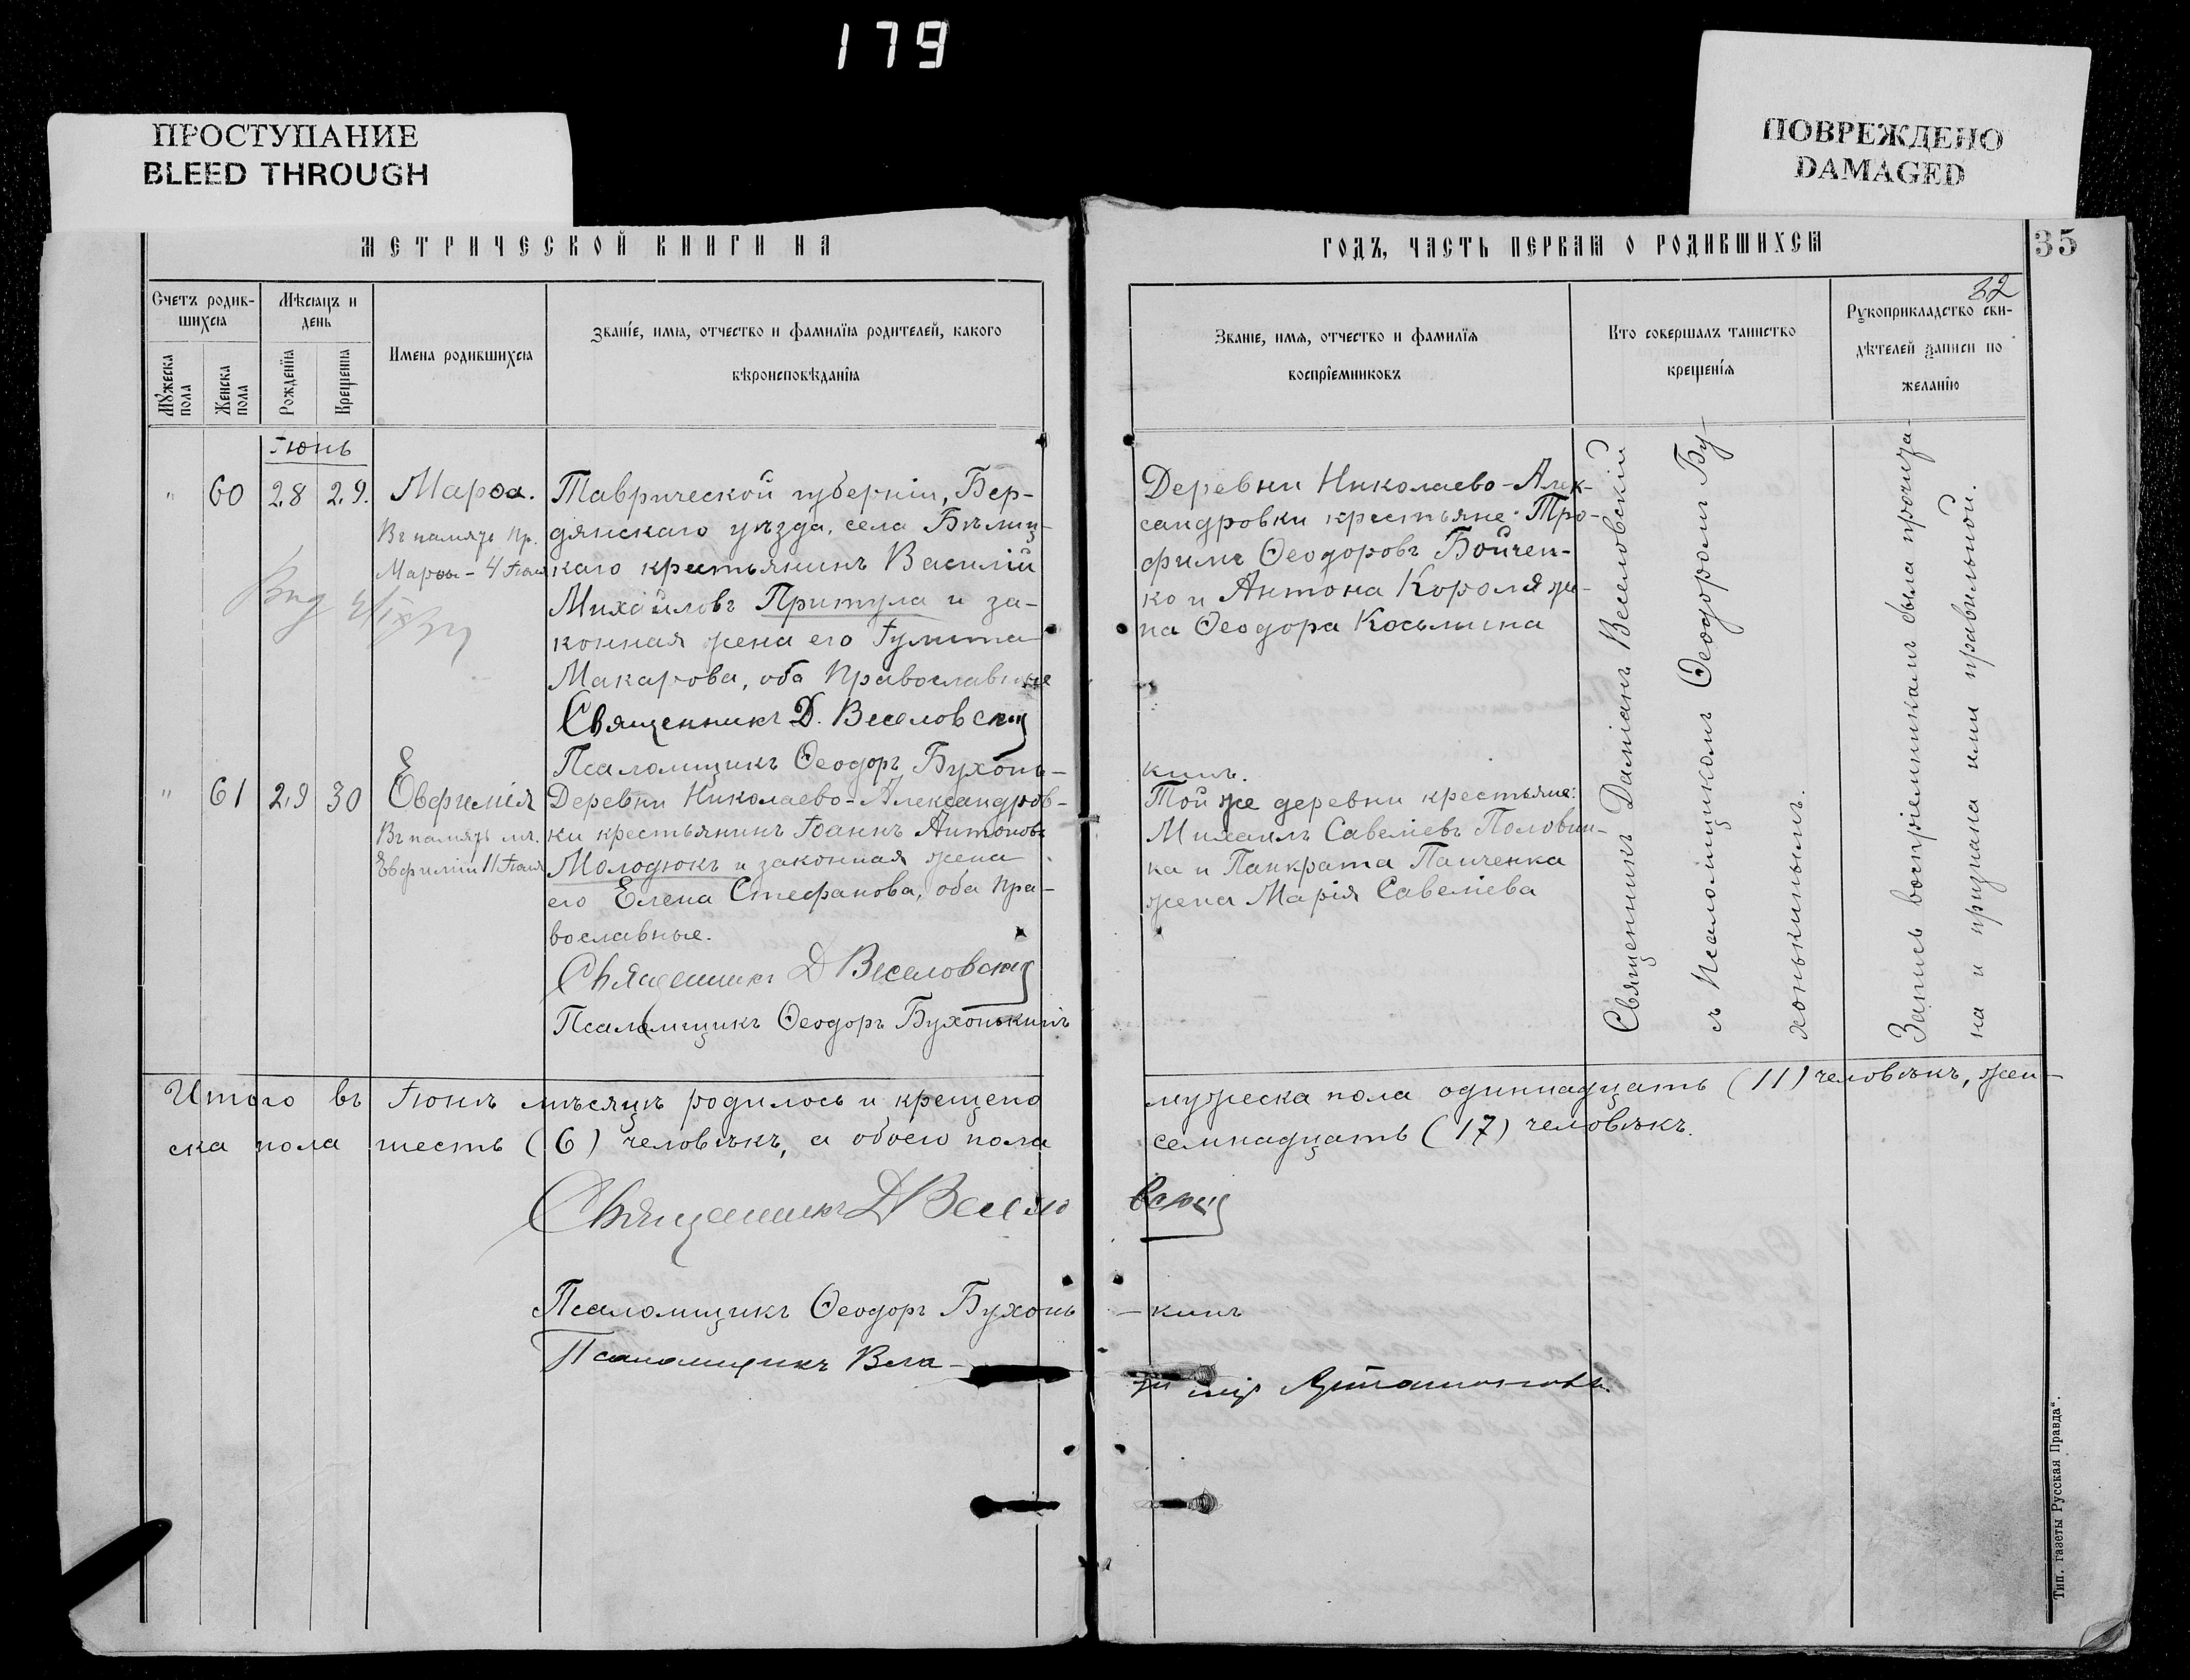 179
ПРОСТУПАНИЕ
BLEED THROUGH
ПОВРЕЖДЕНО
DAMAGED
МЕТРИЧЕСКОЙ КНИГИ НА
ГОДЪ, ЧАСТЬ ПЕРВАЯ О РОДИВШИХСЯ
35
32
Счетъ родив-
шихся
Мѣсяцъ и
день
Мужеска
пола
Женска
пола
Рожденія
Крещенія
Имена родившихся
Званіе, имя, отчество и фамилія родителей, какого
вѣроисповѣданія
Званіе, имя, отчество и фамилія
воспріемниковъ
Кто совершалъ таинство
крещенія
Рукоприкладство сви-
дѣтелей записи по
желанію
Іюнь
" 60 28 29.
Марѳа.
Въ память пр.
Марѳы - 4 Іюля
Таврической губерніи, Бер-
дянскаго уѣзда, села Бѣлиц-
каго крестьянинъ Василій
Михайловъ Притула и за-
конная жена его Іулита
Макарова, оба православные
Священникъ Д. Веселовскій
Псаломщикъ Ѳеодоръ Бухонь-
кинъ.
Деревни Николаево-Алек-
сандровки крестьяне: Тро-
фимъ Ѳеодоровъ Бойчен-
ко и Антона Короля же-
на Ѳеодора Косьмина
" 61 29 30
Евфимія
Въ память мч.
Евфиміи 11 Іюля
Деревни Николаево-Александров-
ки крестьянинъ Іоаннъ Антоновъ
Молодюкъ и законная жена
его Елена Стефанова, оба пра-
вославные.
Священникъ Д Веселовскій
Псаломщикъ Ѳеодоръ Бухонькинъ
Той же деревни крестьяне:
Михаилъ Савеліевъ Половин-
ка и Панкрата Панченка
жена Марія Савеліева
Священникъ Даміанъ Веселовскій
съ Псаломщикомъ Ѳеодоромъ Бу-
хонькинымъ.
Запись воспріемникамъ была прочита-
на и признана ими правильной.
Итого въ Іюнѣ мѣсяцѣ родилось и крещено мужеска пола одиннадцать (11) человѣкъ, жен-
ска пола шесть (6) человѣкъ, а обоего пола семнадцать (17) человѣкъ.
Священникъ Д Веселовскій
Псаломщикъ Ѳеодоръ Бухонь-кинъ
Псаломщикъ Вла-
Тип. газеты „Русская Правда“.